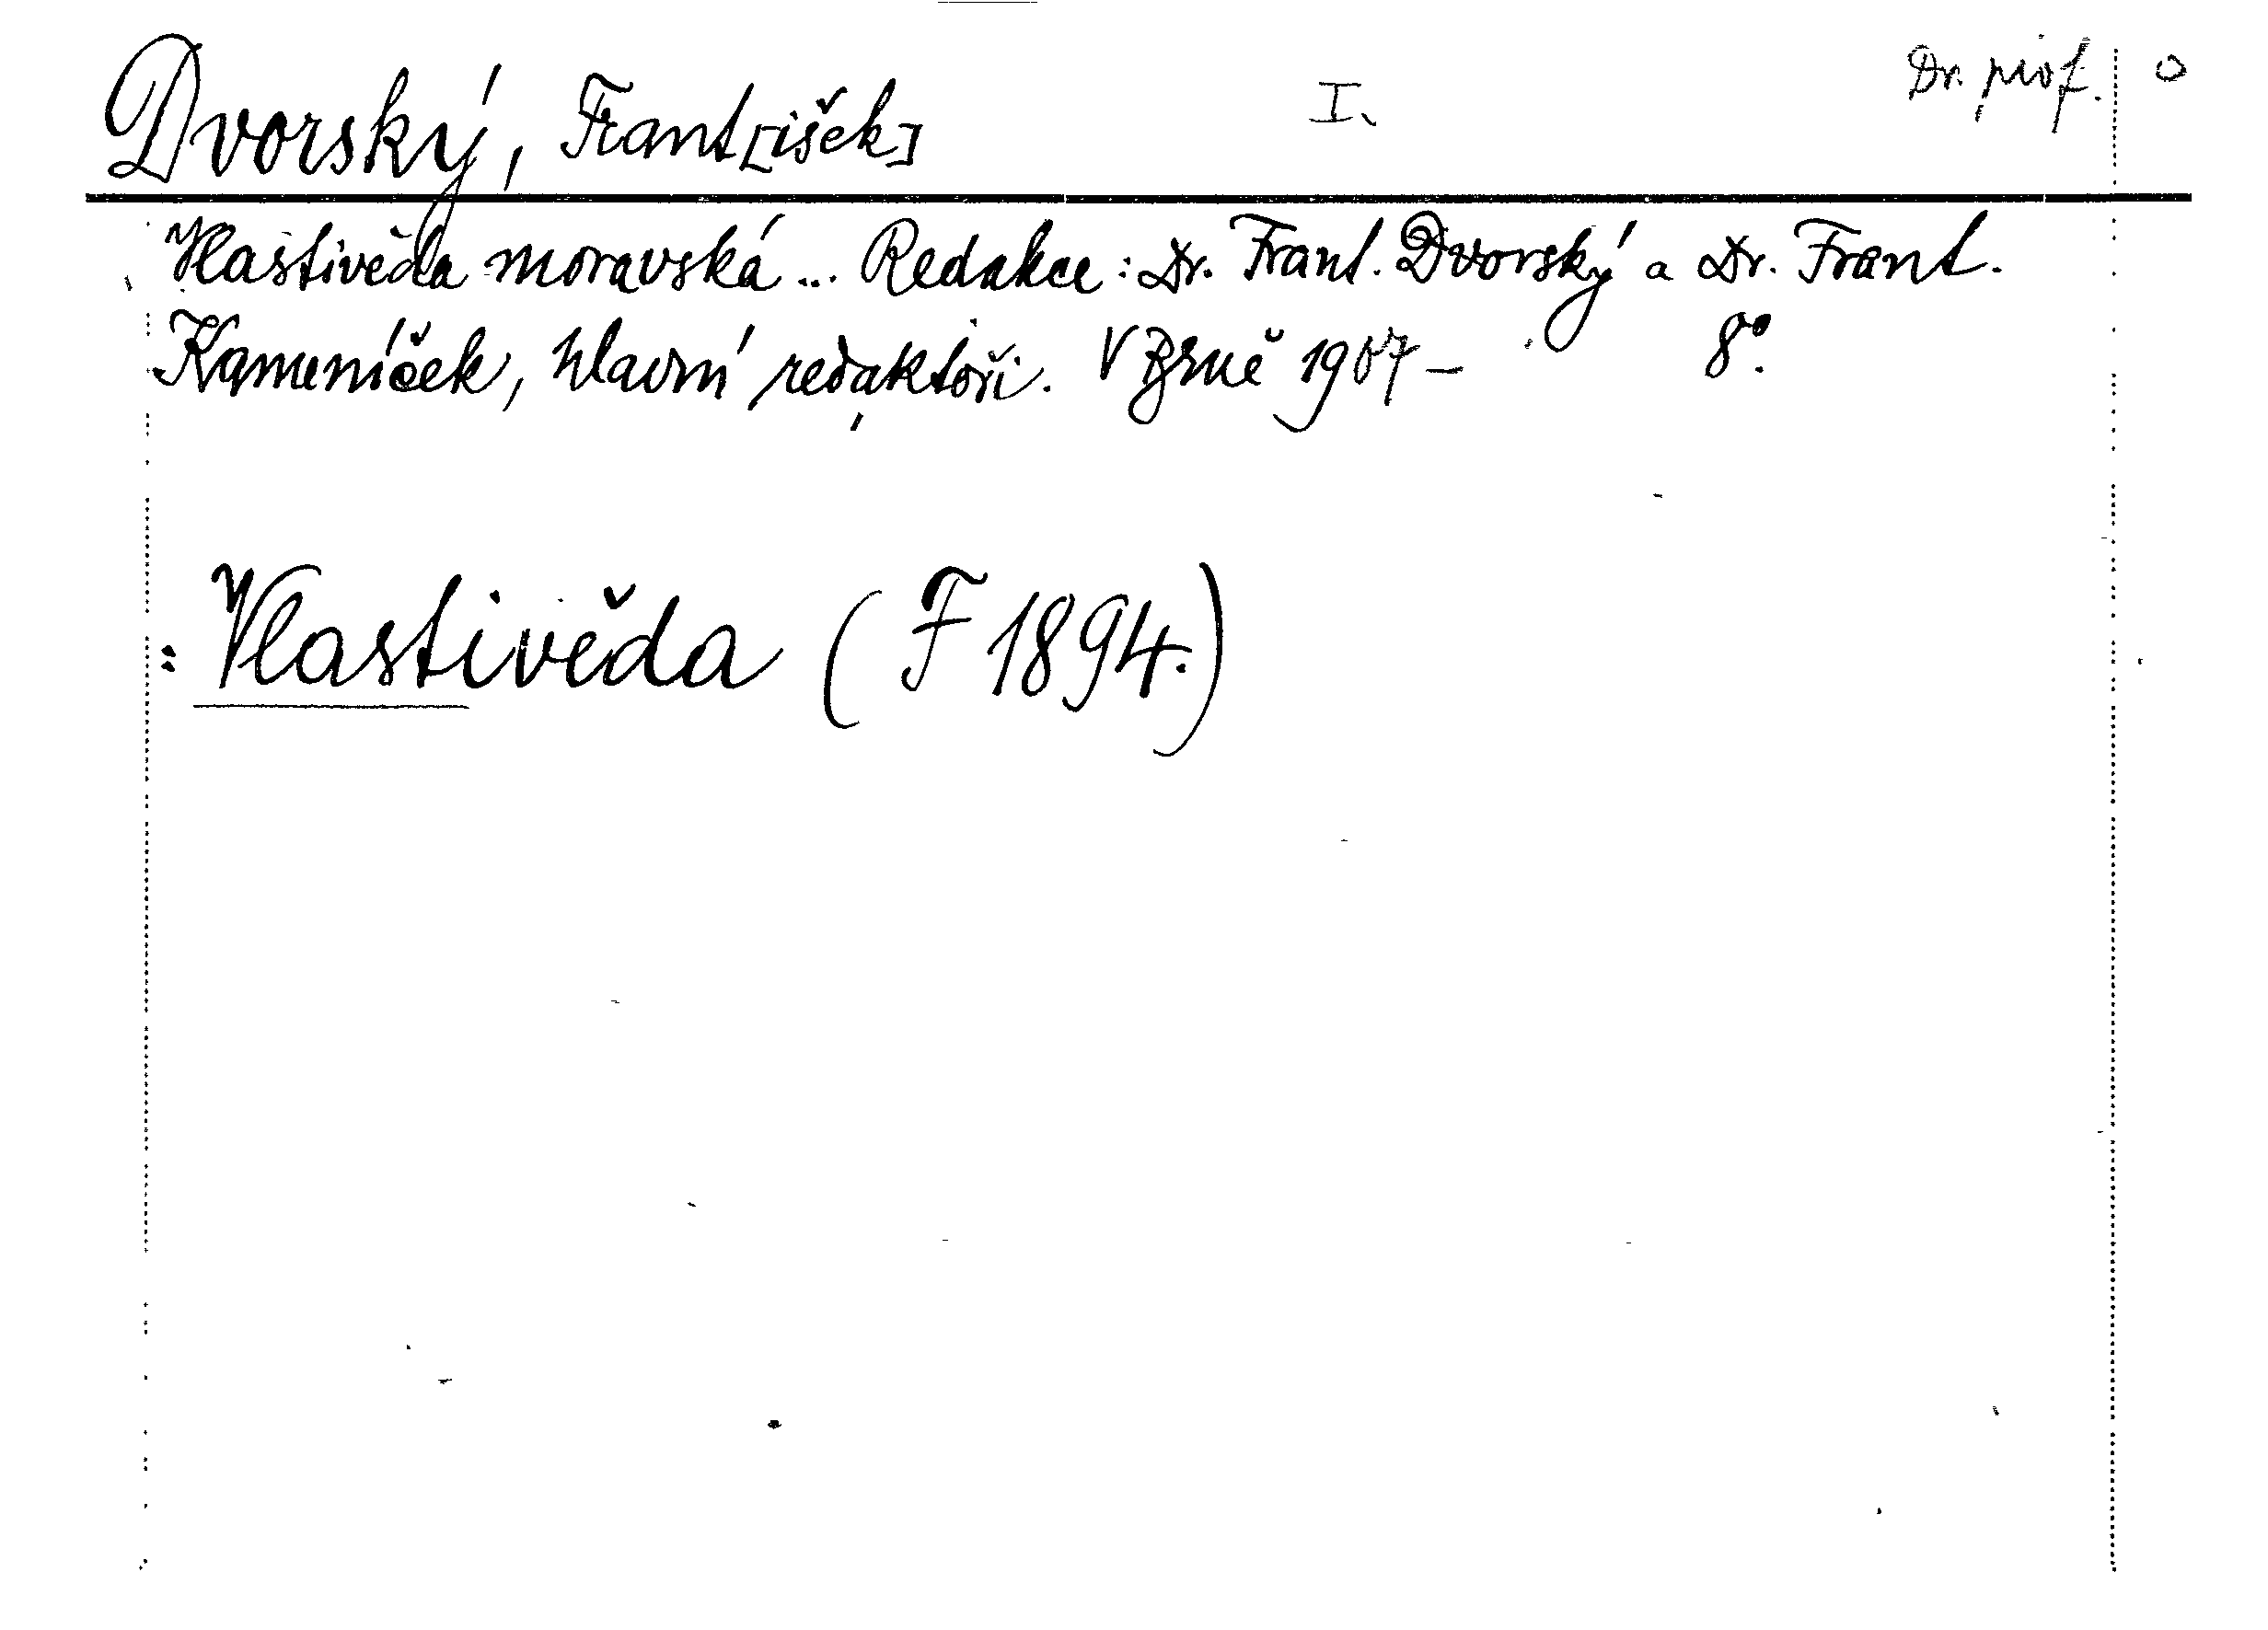 Dvorský, Frant[išek] I. Dr. prof. o
Vlastivěda moravská ... Redakce: Dr. Frant. Dvorský a Dr. Frant.
Kameníček, hlavní redaktoři. V Brně 1907- 8°.
: Vlastivěda (F 1894.)